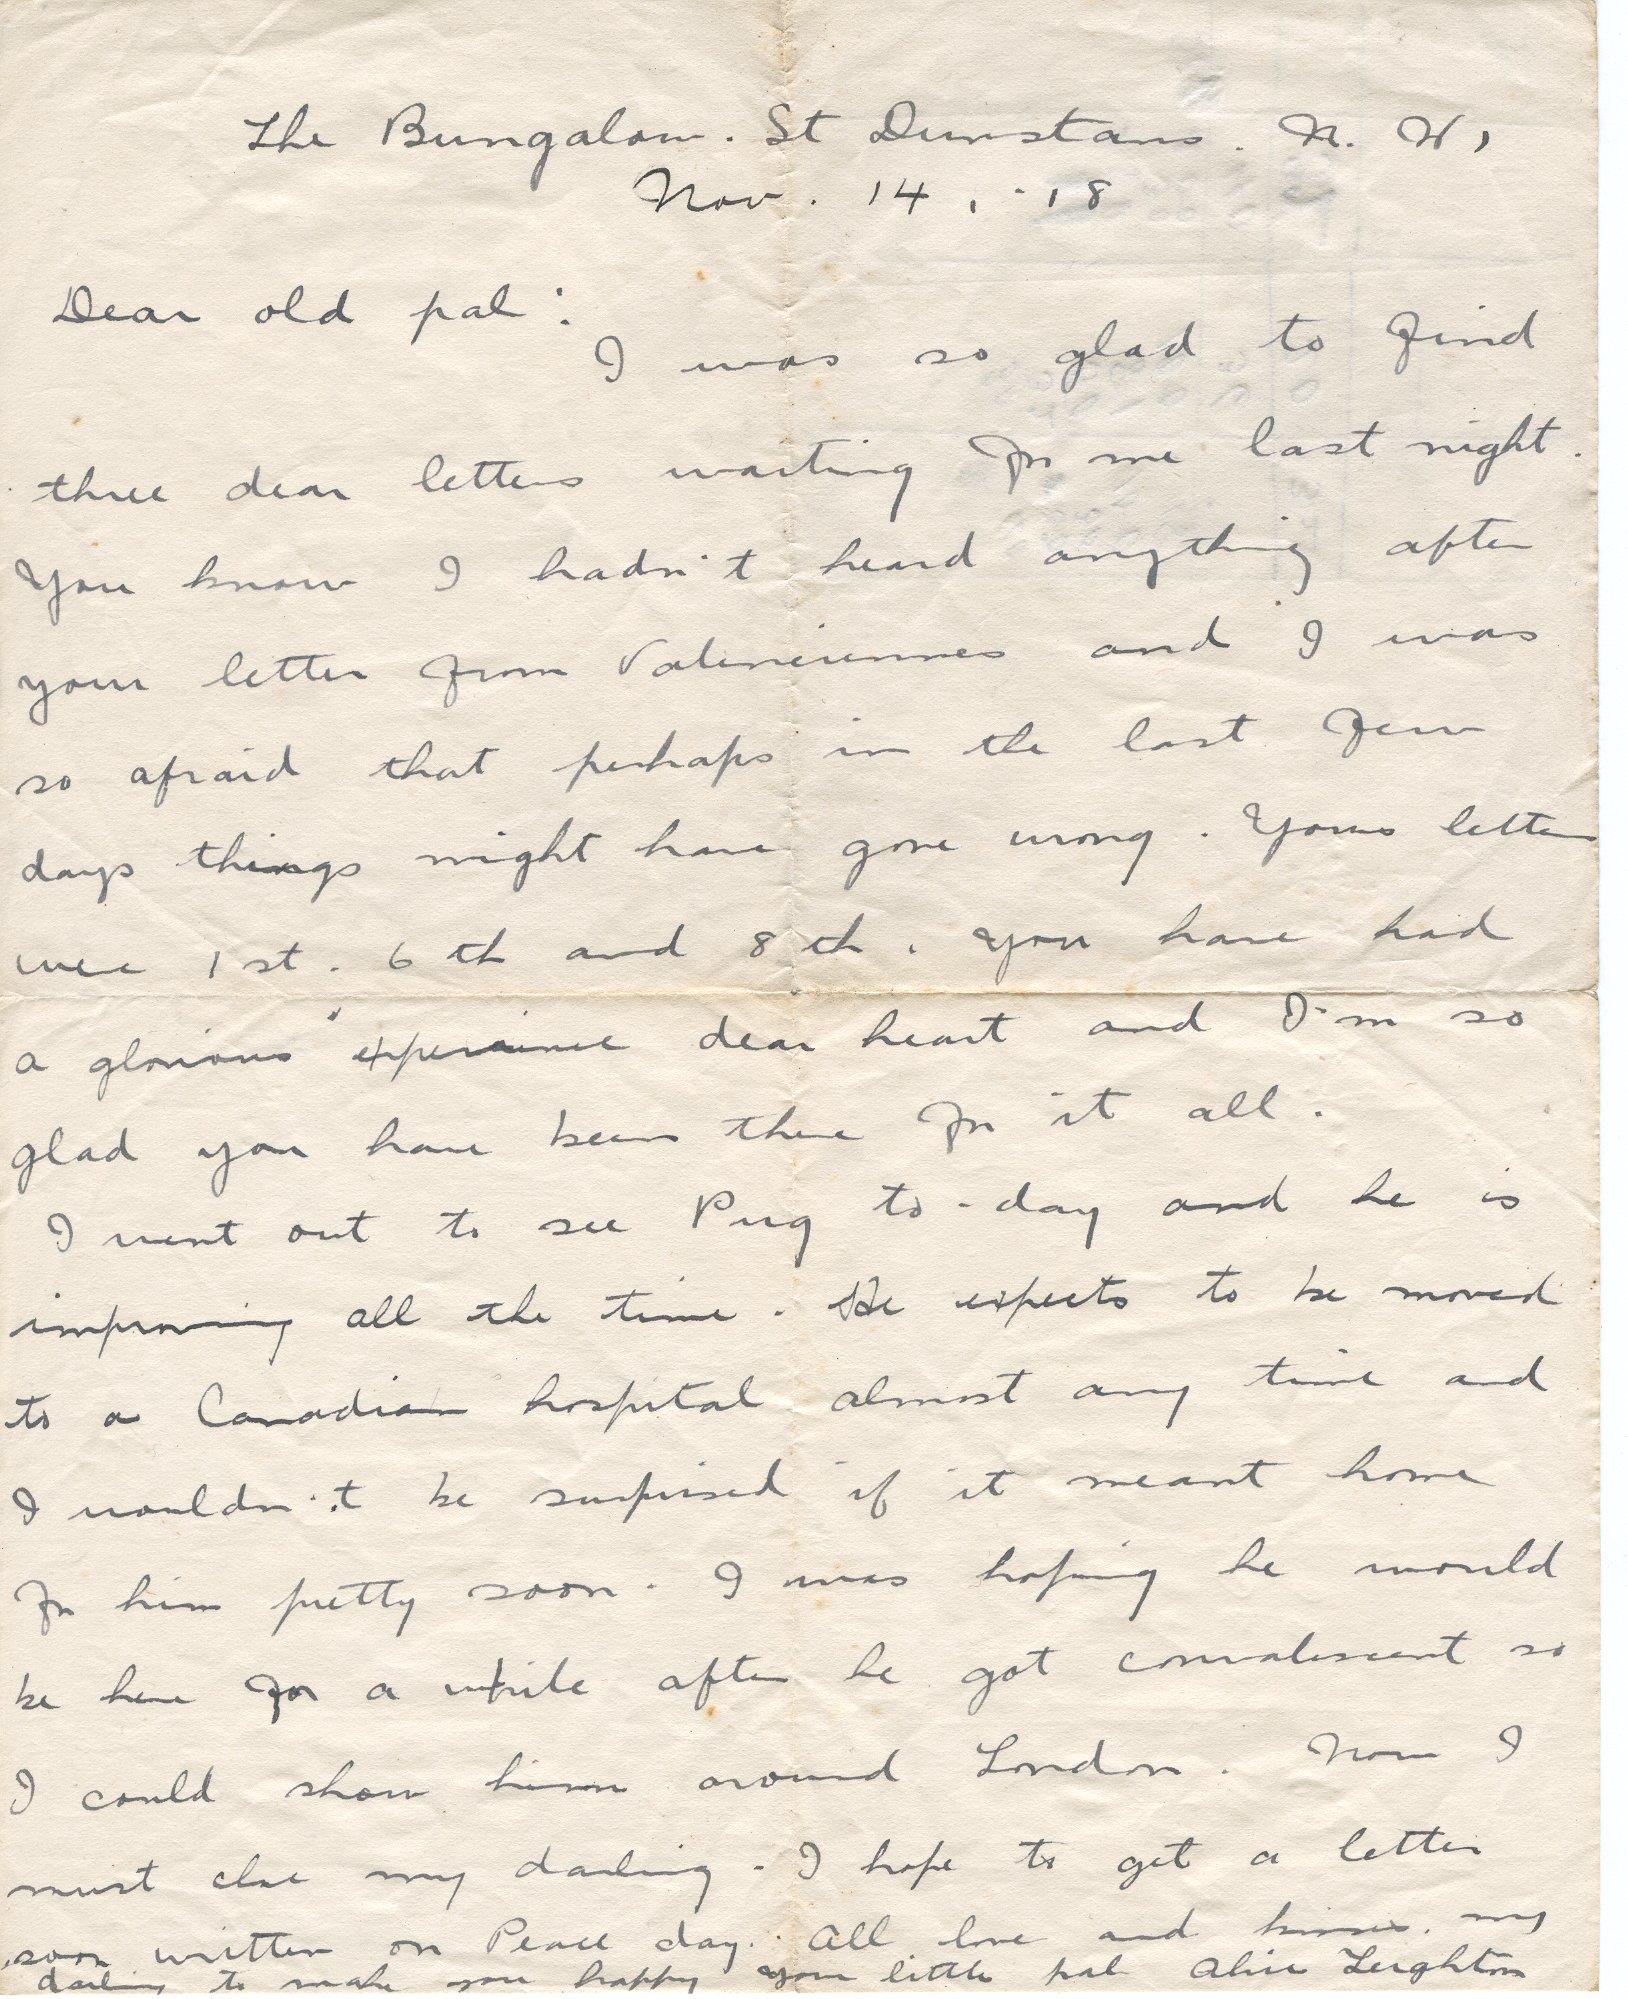 The Bungalow. St Dunstans. N. W,
Nov. 14, '18
Dear old pal:
I was so glad to find
three dear letters waiting for me last night.
You know I hadn't heard anything after
your letter from Valenciennes and I was
so afraid that perhaps in the last few
days things might have gone wrong. Yours letters
were 1st. 6th and 8th. You have had
a glorious experience dear heart and I'm so
glad you have been there for it all.
I went out to see Pug to-day and he is
improving all the time. He expects to be moved
to a Canadian hospital almost any time and
I wouldn't be surprised if it meant home
for him pretty soon. I was hoping he would
be here for a while after he got convalescent so
I could show him around London. Now I
must close my darling. I hope to get a letter
soon written on Peace day. All love and kisses my
darling to make you happy your little pal Alice Leighton